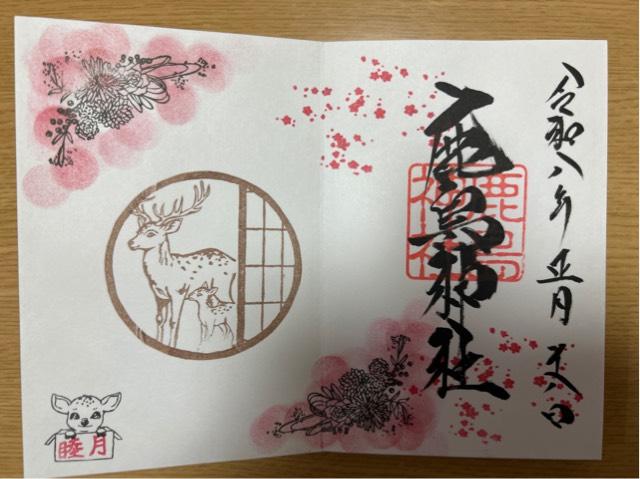 令和八年 正月 八日
鹿島神社
鹿島
神社
睦月